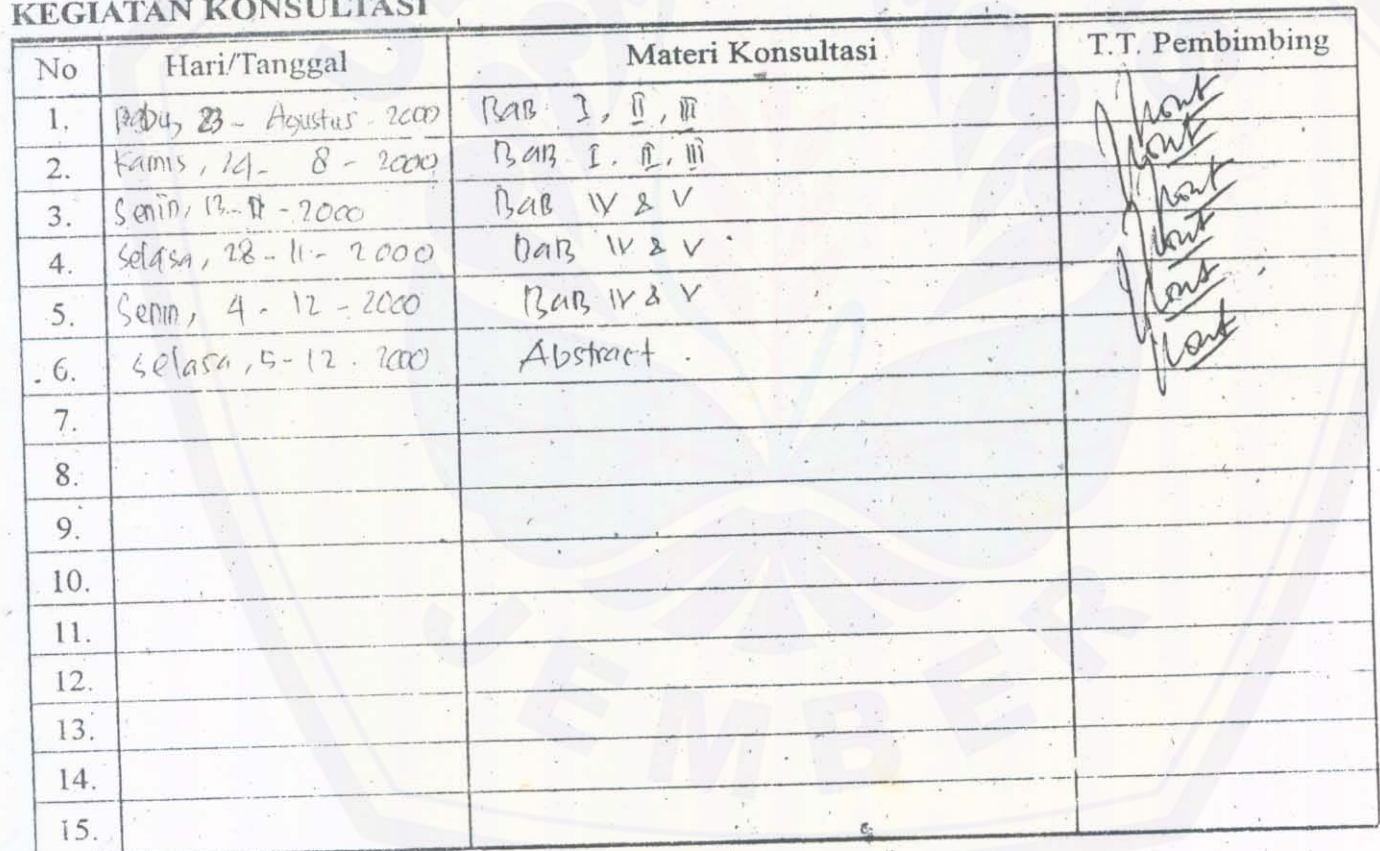 KEGIATAN KONSULTASI
No Hari/Tanggal Materi Konsultasi T.T. Pembimbing
1. Rabu, 23 - Agustus - 2000 BAB I, II, III
2. Kamis, 8 - 2000 BAB I. II, III
3. Senin, 13 - 11 - 2000 BAB IV & V
4. Selasa, 28 - 11 - 2000 BAB IV & V
5. Senin, 4 - 12 - 2000 BAB IV & V
6. Selasa, 5 - 12 - 2000 Abstract
7.
8.
9.
10.
11.
12.
13.
14.
15.
JEMBER